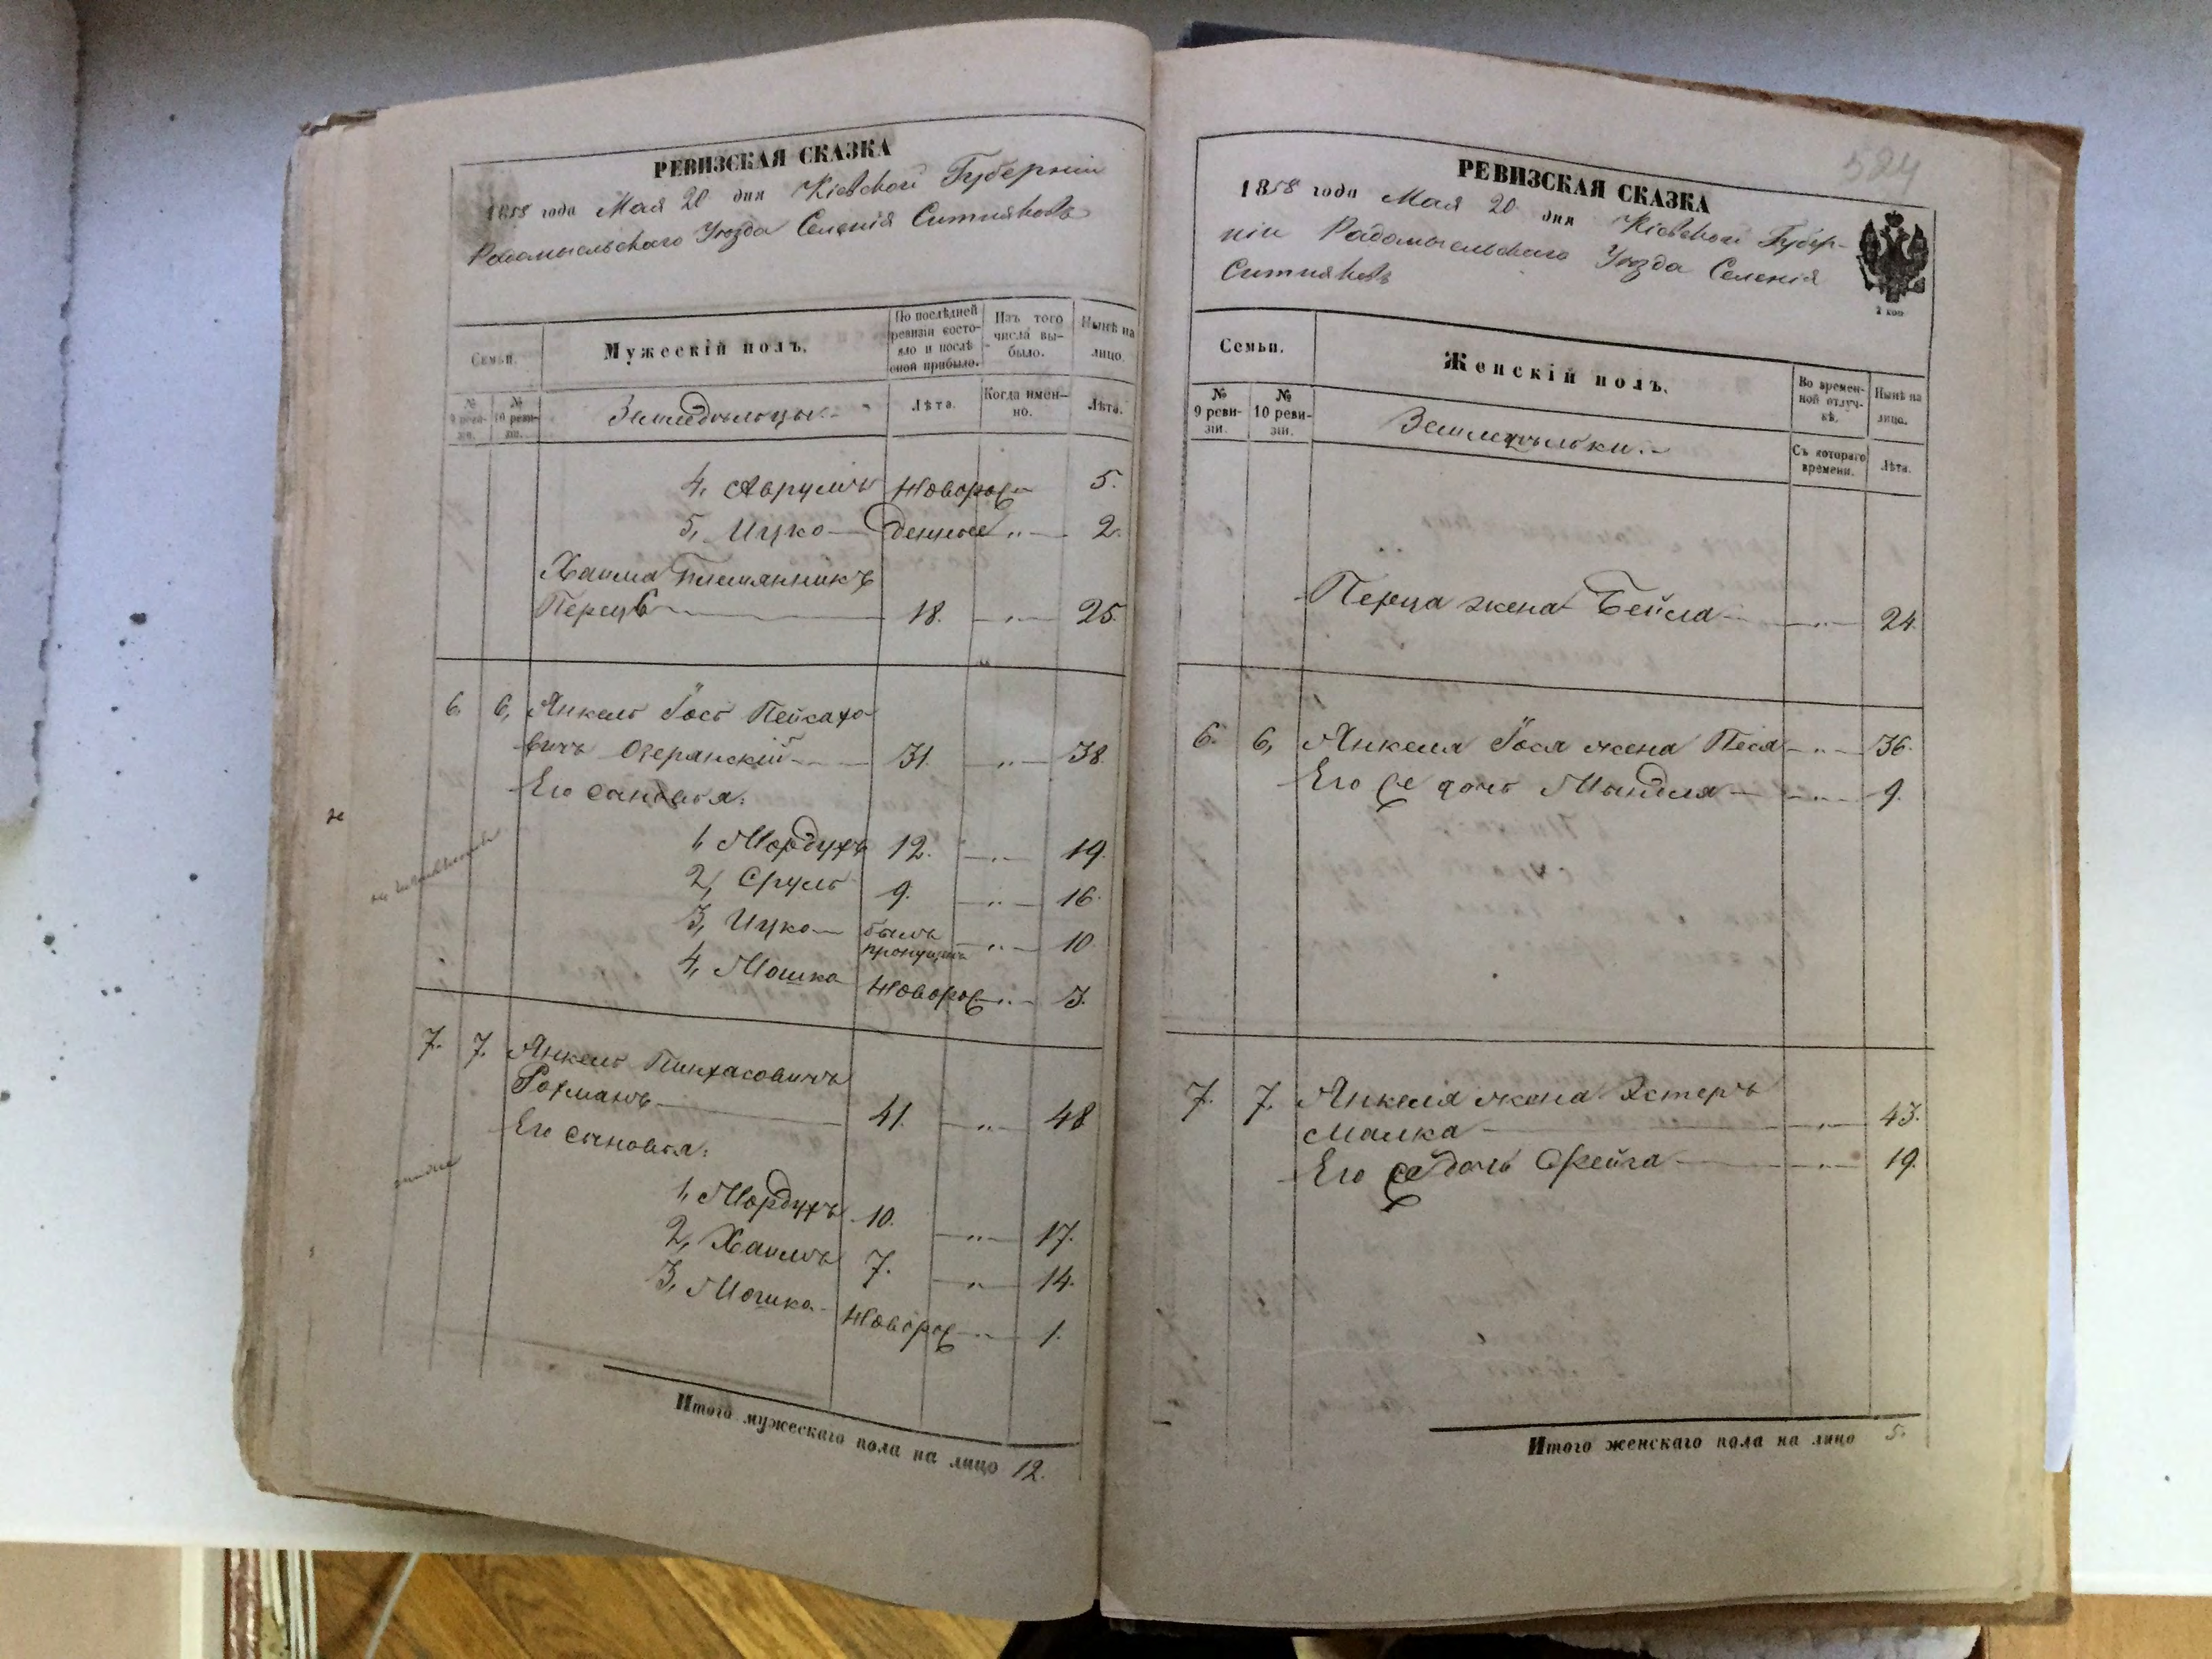 РЕВИЗСКАЯ СКАЗКА
1858 года Мая 20 дня Кіевской Губерніи
Радомысльскаго Уѣзда Селенія Ситняковъ
Семьи.
Мужескій полъ.
По послѣдней ревизіи состояло и послѣ оной прибыло.
Изъ того числа выбыло.
Нынѣ на лицо.
№ 9 ревизіи.
№ 10 ревизіи.
Земледѣльцы.
Лѣта.
Когда именно.
Лѣта.
4, Аврумъ Новорож 5.
5, Ицко денные „ 2.
Хаима племянникъ
Перецъ 18. „ 25.
6 6, Янкель Іось Пейсахо
вичъ Озерянскій 31. „ 38.
Его сыновья:
не
1, Мордухъ 12. „ 19.
2, Сруль 9. „ 16.
3, Ицко былъ пропущенъ „ 10
4, Мошка Новорож „ 3.
7. 7. Янкель Пинхасовичъ
Рохманъ 41. „ 48
Его сыновья:
1, Мордухъ 10. „ 17.
2, Хаимъ 7. „ 14.
3, Мошка Новорож „ 1.
Итого мужескаго пола на лицо 12.
584
РЕВИЗСКАЯ СКАЗКА
1858 года Мая 20 дня Кіевской Губер-
ніи Радомысльскаго Уѣзда Селенія
Ситняковъ
2 коп
Семьи.
Женскій полъ.
Во временной отлучкѣ.
Нынѣ на лицо.
№ 9 ревизіи.
№ 10 ревизіи.
Земледѣльки.
Съ котораго времени.
Лѣта.
Перца жена Бейла „ 24.
6. 6, Янкеля Іося жена Песя „ 36.
Его дочь Мындля „ 9.
7. 7. Янкеля жена Эстеръ
Малка „ 43.
Его дочь Фейга „ 19.
Итого женскаго пола на лицо 5.